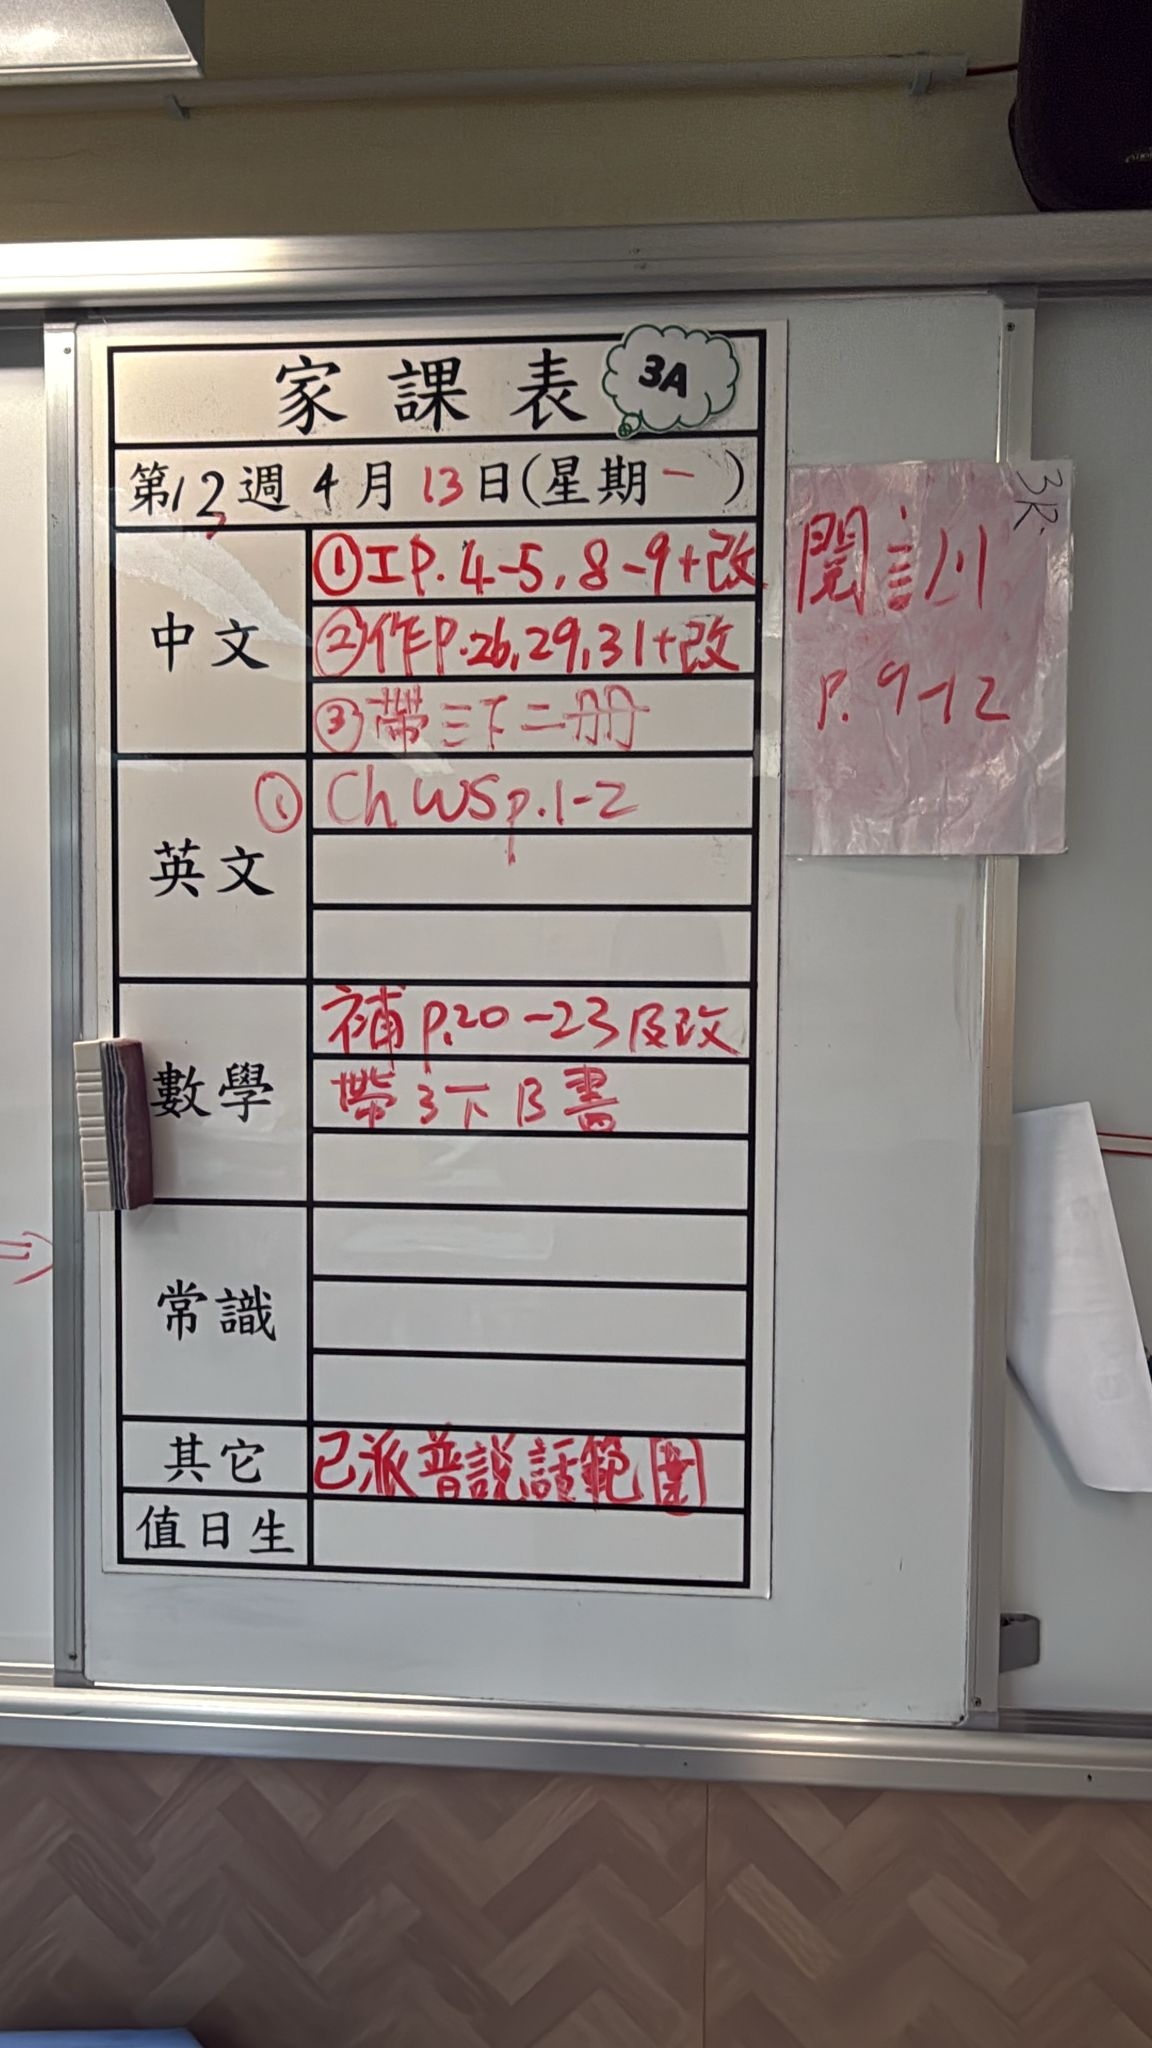 家課表 3A
第12週 4月13日(星期一)
中文
①工P.4-5,8-9+改
②作P.26,29,31+改
③帶三下二冊
英文
① Ch WS p.1-2
數學
補 p.20-23及改
帶3下B書
常識
其它
已派普説話範圍
值日生
3R
閱訓
P.9-12